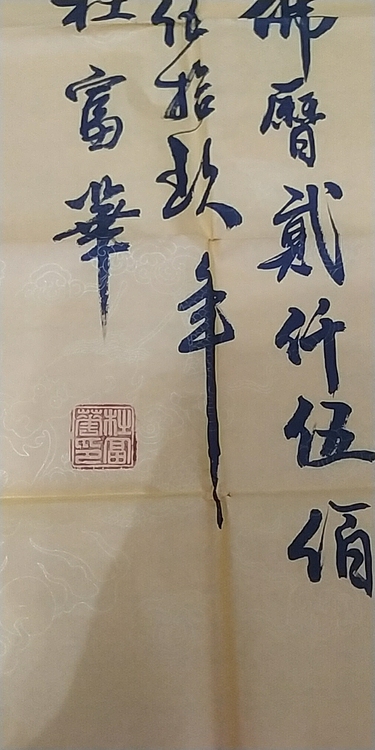 佛曆貳仟伍佰
伍拾玖年
杜富華
杜富
華印